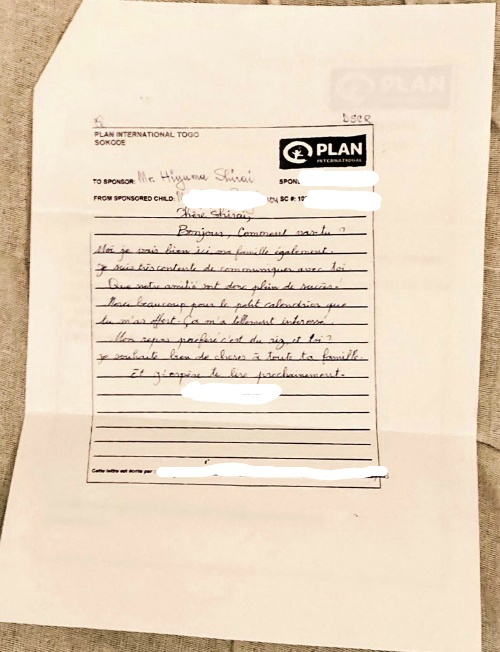 DSCR
PLAN INTERNATIONAL TOGO
SOKODE
PLAN
INTERNATIONAL
TO SPONSOR: Mr. Hiyuma Shirai
SPON
FROM SPONSORED CHILD:
SC #: 1
Chère Shirai,
Bonjour, Comment vas-tu ?
Moi je vais bien ici, ma famille également.
Je suis très contente de communiquer avec toi
Que notre amitié soit donc plein de succès
Merci beaucoup pour le petit calendrier que
tu m'as offert. Ça m'a tellement interessé.
Mon repas préféré c'est du riz et toi ?
je souhaite bien de choses à toute ta famille.
Et j'espère te lire prochainement.
Cette lettre est écrite par :